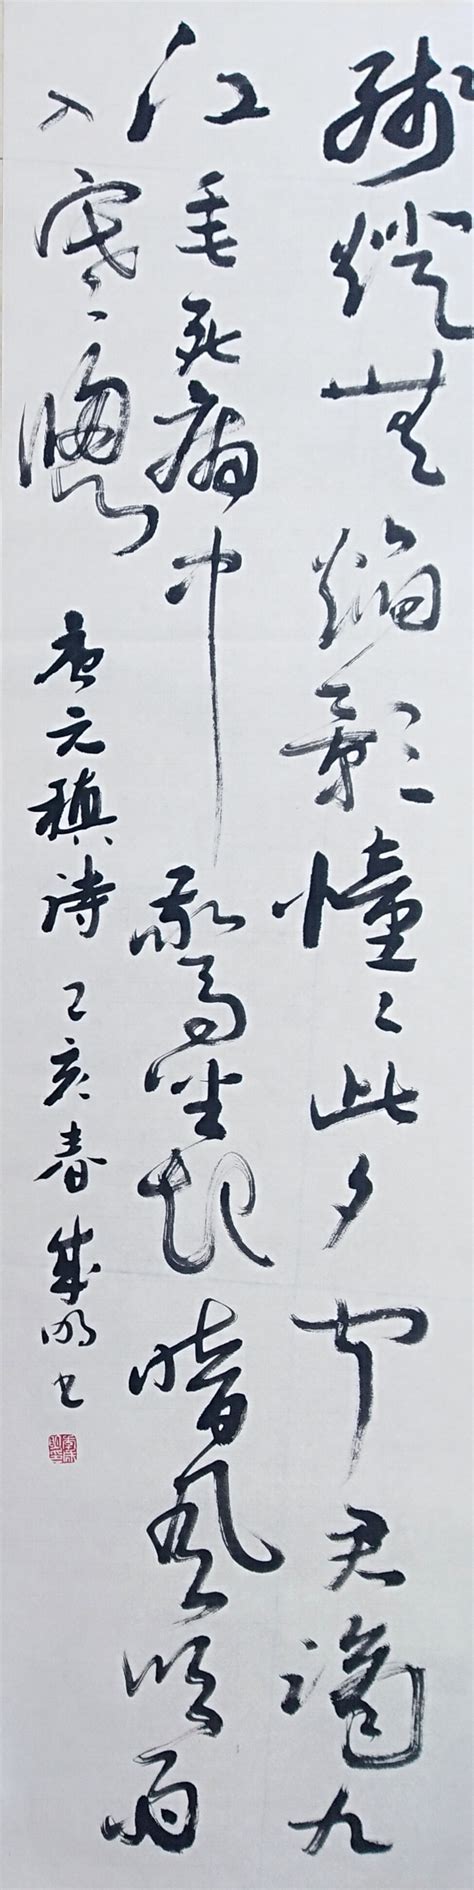 殘燈無焰影憧〻此夕聞君謫九
江垂死病中驚坐起暗風吹雨
入寒牕
唐元稹詩 己亥春 成明書